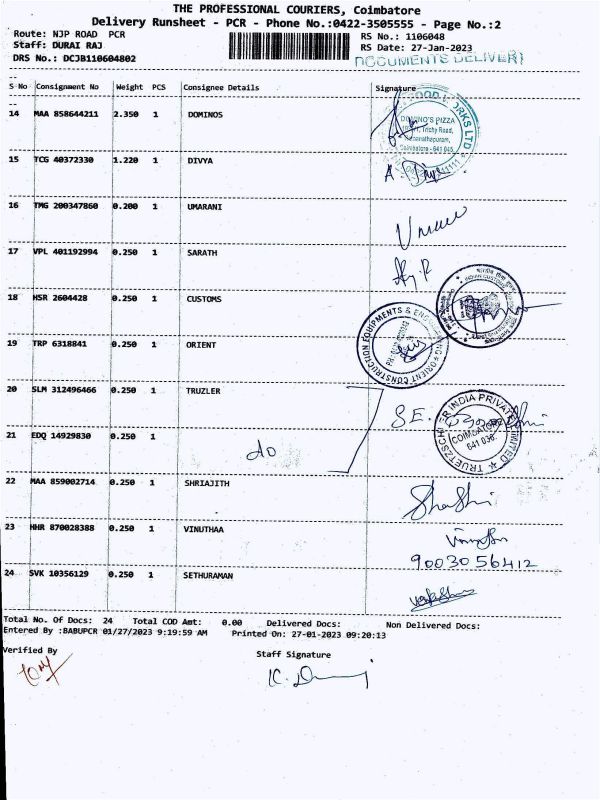 THE PROFESSIONAL COURIERS, Coimbatore
Delivery Runsheet - PCR - Phone No.:0422-3505555 - Page No.:2
Route: NJP ROAD PCR
RS No.: 1106048
Staff: DURAI RAJ
RS Date: 27-Jan-2023
DRS No.: DCJB110604802
DOCUMENTS DELIVERY
S No Consignment No Weight PCS Consignee Details Signature
14 MAA 858644211 2.350 1 DOMINOS
DOMINO'S PIZZA
Trichy Road,
Coimbatore - 641 045
15 TCG 40372330 1.220 1 DIVYA
16 TMG 200347860 0.200 1 UMARANI
17 VPL 401192994 0.250 1 SARATH
18 HSR 2604428 0.250 1 CUSTOMS
19 TRP 6318841 0.250 1 ORIENT
ORIENT CONSTRUCTION EQUIPMENTS &
20 SLM 312496466 0.250 1 TRUZLER
COIMBATORE
641 036.
21 EDQ 14929830 0.250 1 do
22 MAA 859002714 0.250 1 SHRIAJITH Shashi
23 HHR 870028388 0.250 1 VINUTHAA
9003056412
24 SVK 10356129 0.250 1 SETHURAMAN
Total No. Of Docs: 24 Total COD Amt: 0.00 Delivered Docs: Non Delivered Docs:
Entered By :BABUPCR 01/27/2023 9:19:59 AM Printed On: 27-01-2023 09:20:13
Verified By
Staff Signature